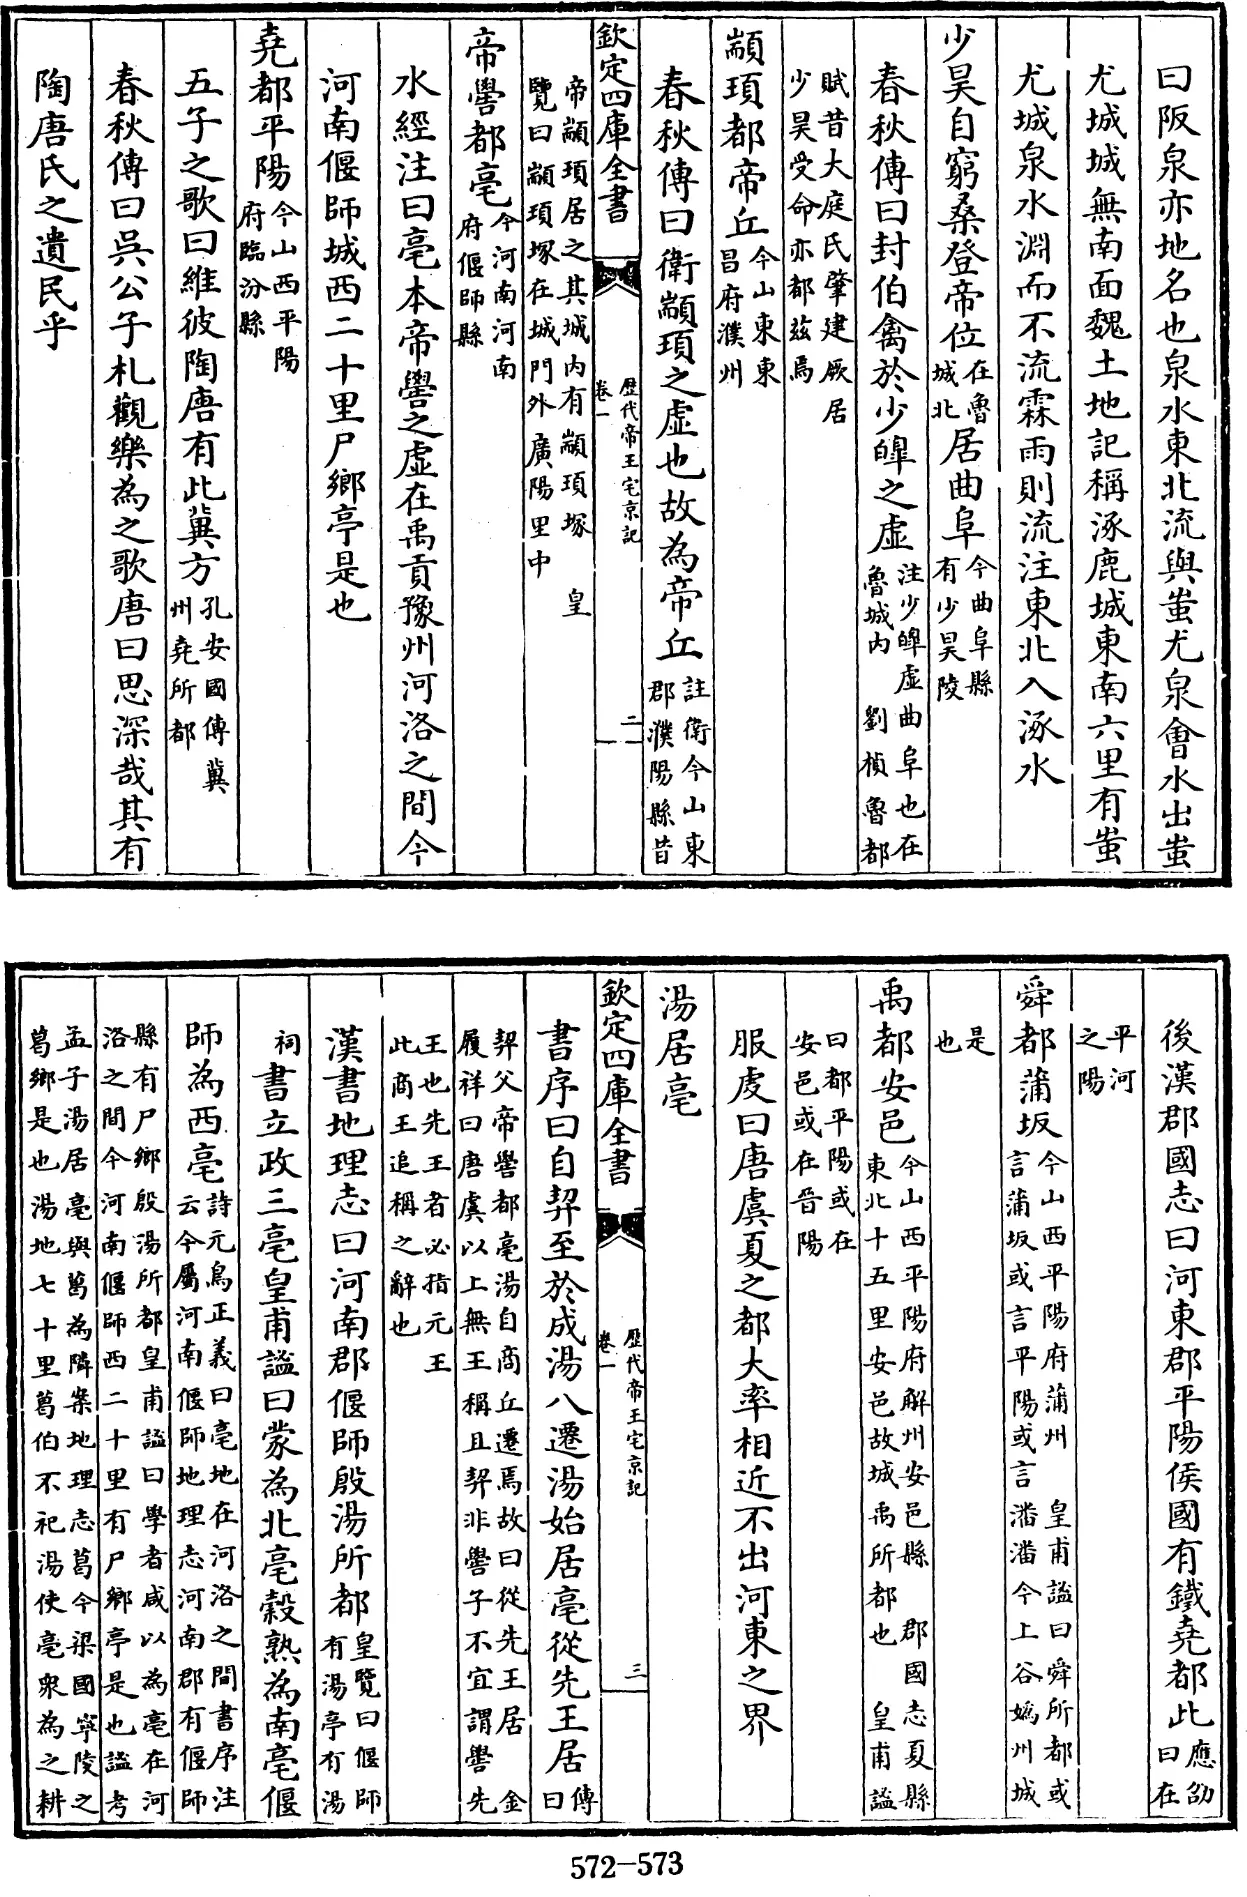 曰阪泉亦地名也泉水東北流與蚩尤泉會水出蚩
尤城城無南面魏土地記稱涿鹿城東南六里有蚩
尤城泉水淵而不流霖雨則流注東北入涿水
少昊自窮桑登帝位在魯城北居曲阜今曲阜縣有少昊陵
春秋傳曰封伯禽於少皥之虛注少皥虛曲阜也在魯城內 劉楨魯都
賦昔大庭氏肇建厥居少昊受命亦都兹焉
顓頊都帝丘今山東東昌府濮州
春秋傳曰衛顓頊之虛也故為帝丘註衛今山東郡濮陽縣昔
欽定四庫全書 歷代帝王宅京記 卷一 二
帝顓頊居之其城內有顓頊塚 皇覽曰顓頊塚在城門外廣陽里中
帝嚳都亳今河南河南府偃師縣
水經注曰亳本帝嚳之虛在禹貢豫州河洛之間今
河南偃師城西二十里尸鄉亭是也
堯都平陽今山西平陽府臨汾縣
五子之歌曰維彼陶唐有此冀方孔安國傳冀州堯所都
春秋傳曰吳公子札觀樂為之歌唐曰思深哉其有
陶唐氏之遺民乎
後漢郡國志曰河東郡平陽侯國有鐵堯都此應劭曰在
平河之陽
舜都蒲坂今山西平陽府蒲州 皇甫謐曰舜所都或言蒲坂或言平陽或言潘潘今上谷嬀州城
是也
禹都安邑今山西平陽府解州安邑縣 郡國志夏縣東北十五里安邑故城禹所都也 皇甫謐
曰都平陽或在安邑或在晉陽
服虔曰唐虞夏之都大率相近不出河東之界
湯居亳
欽定四庫全書 歷代帝王宅京記 卷一 三
書序曰自契至於成湯八遷湯始居亳從先王居傳曰
契父帝嚳都亳湯自商丘遷焉故曰從先王居 金履祥曰唐虞以上無王稱且契非嚳子不宜謂嚳先
王也先王者必指元王此商王追稱之辭也
漢書地理志曰河南郡偃師殷湯所都皇覽曰偃師有湯亭有湯
祠書立政三亳皇甫謐曰蒙為北亳穀熟為南亳偃
師為西亳詩元鳥正義曰亳地在河洛之間書序注云今屬河南偃師地理志河南郡有偃師
縣有尸鄉殷湯所都皇甫謐曰學者咸以為亳在河洛之間今河南偃師西二十里有尸鄉亭是也謐考
孟子湯居亳與葛為隣案地理志葛今梁國寧陵之葛鄉是也湯地七十里葛伯不祀湯使亳衆為之耕
572—573